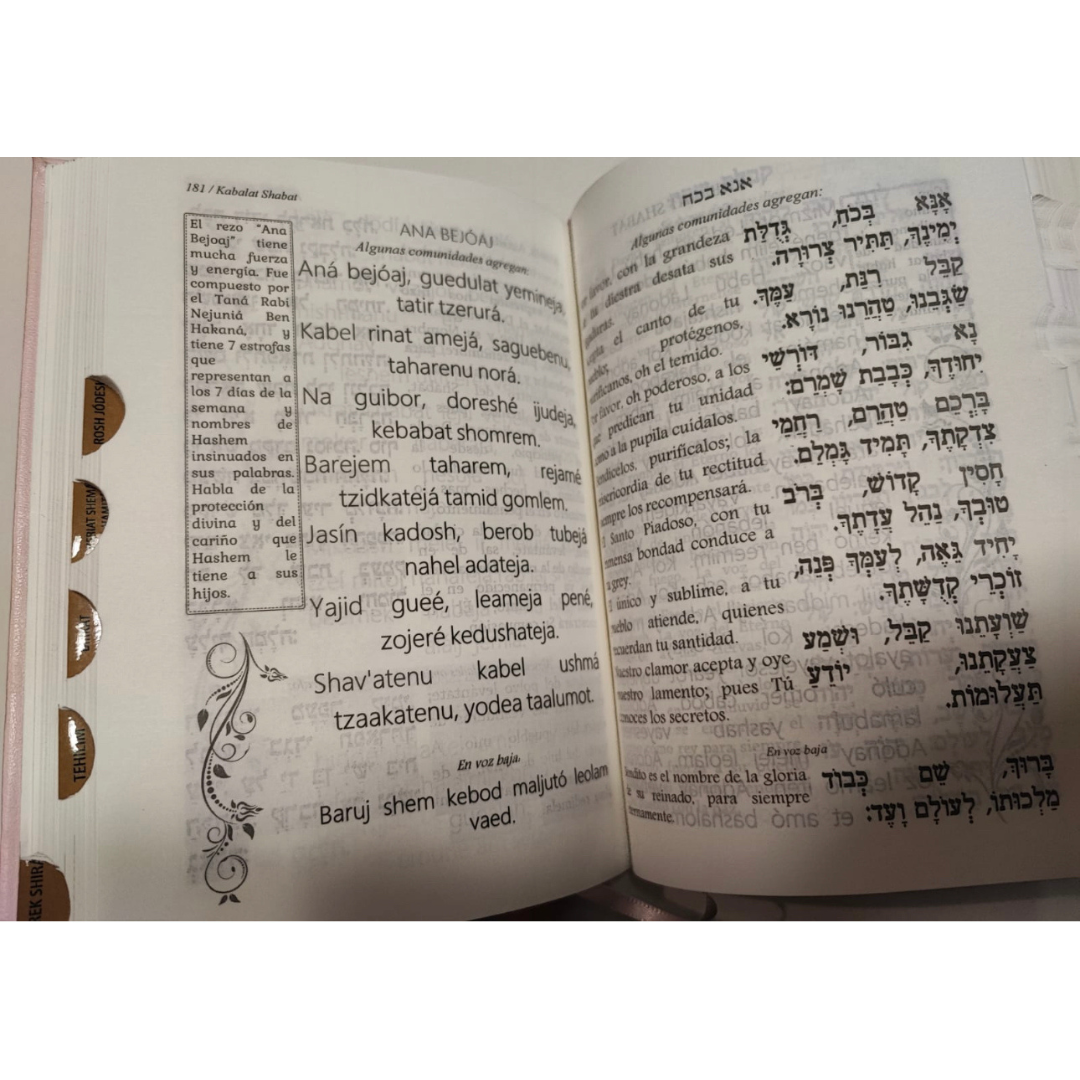 181 / Kabalat Shabat
El rezo "Ana
Bejoaj" tiene
mucha fuerza
y energía. Fue
compuesto por
el Taná Rabí
Nejuniá Ben
Hakaná, y
tiene 7 estrofas
que
representan a
los 7 días de la
semana y
nombres de
Hashem
insinuados en
sus palabras.
Habla de la
protección
divina y del
cariño que
Hashem le
tiene a sus
hijos.
ANA BEJÓAJ
Algunas comunidades agregan:
Aná bejóaj, guedulat yemineja,
tatir tzerurá.
Kabel rinat amejá, saguebenu,
taharenu norá.
Na guibor, doreshé ijudeja,
kebabat shomrem.
Barejem taharem, rejamé
tzidkatejá tamid gomlem.
Jasín kadosh, berob tubejá
nahel adateja.
Yajid gueé, leameja pené,
zojeré kedushateja.
Shav'atenu kabel ushmá
tzaakatenu, yodea taalumot.
En voz baja.
Baruj shem kebod maljutó leolam
vaed.
ROSH JÓDESH
TEHILIM
REK SHIRA
אנא בכח
Algunas comunidades agregan:
favor, con la grandeza
tu diestra desata sus
el canto de tu
protégenos,
oh el temido.
favor, oh poderoso, a los
predican tu unidad
a la pupila cuídalos.
purifícalos; la
de tu rectitud
los recompensará.
Santo Piadoso, con tu
bondad conduce a
grey.
único y sublime, a tu
atiende, quienes
tu santidad.
clamor acepta y oye
lamento; pues Tú
los secretos.
En voz baja
es el nombre de la gloria
su reinado, para siempre
אָנָּא בְּכֹחַ, גְּדֻלַּת
יְמִינֶךָ, תַּתִּיר צְרוּרָה.
קַבֵּל רִנַּת, עַמֶּךָ.
שַׂגְּבֵנוּ, טַהֲרֵנוּ נוֹרָא.
נָא גִבּוֹר, דּוֹרְשֵׁי
יִחוּדֶךָ, כְּבָבַת שָׁמְרֵם:
בָּרְכֵם טַהֲרֵם, רַחֲמֵי
צִדְקָתֶךָ, תָּמִיד גָּמְלֵם.
חָסִין קָדוֹשׁ, בְּרֹב
טוּבְךָ, נַהֵל עֲדָתֶךָ.
יָחִיד גֵּאֶה, לְעַמְּךָ פְּנֵה,
זוֹכְרֵי קְדֻשָּׁתֶךָ.
שַׁוְעָתֵנוּ קַבֵּל, וּשְׁמַע
צַעֲקָתֵנוּ, יוֹדֵעַ
תַּעֲלוּמוֹת.
בָּרוּךְ, שֵׁם כְּבוֹד
מַלְכוּתוֹ, לְעוֹלָם וָעֶד: